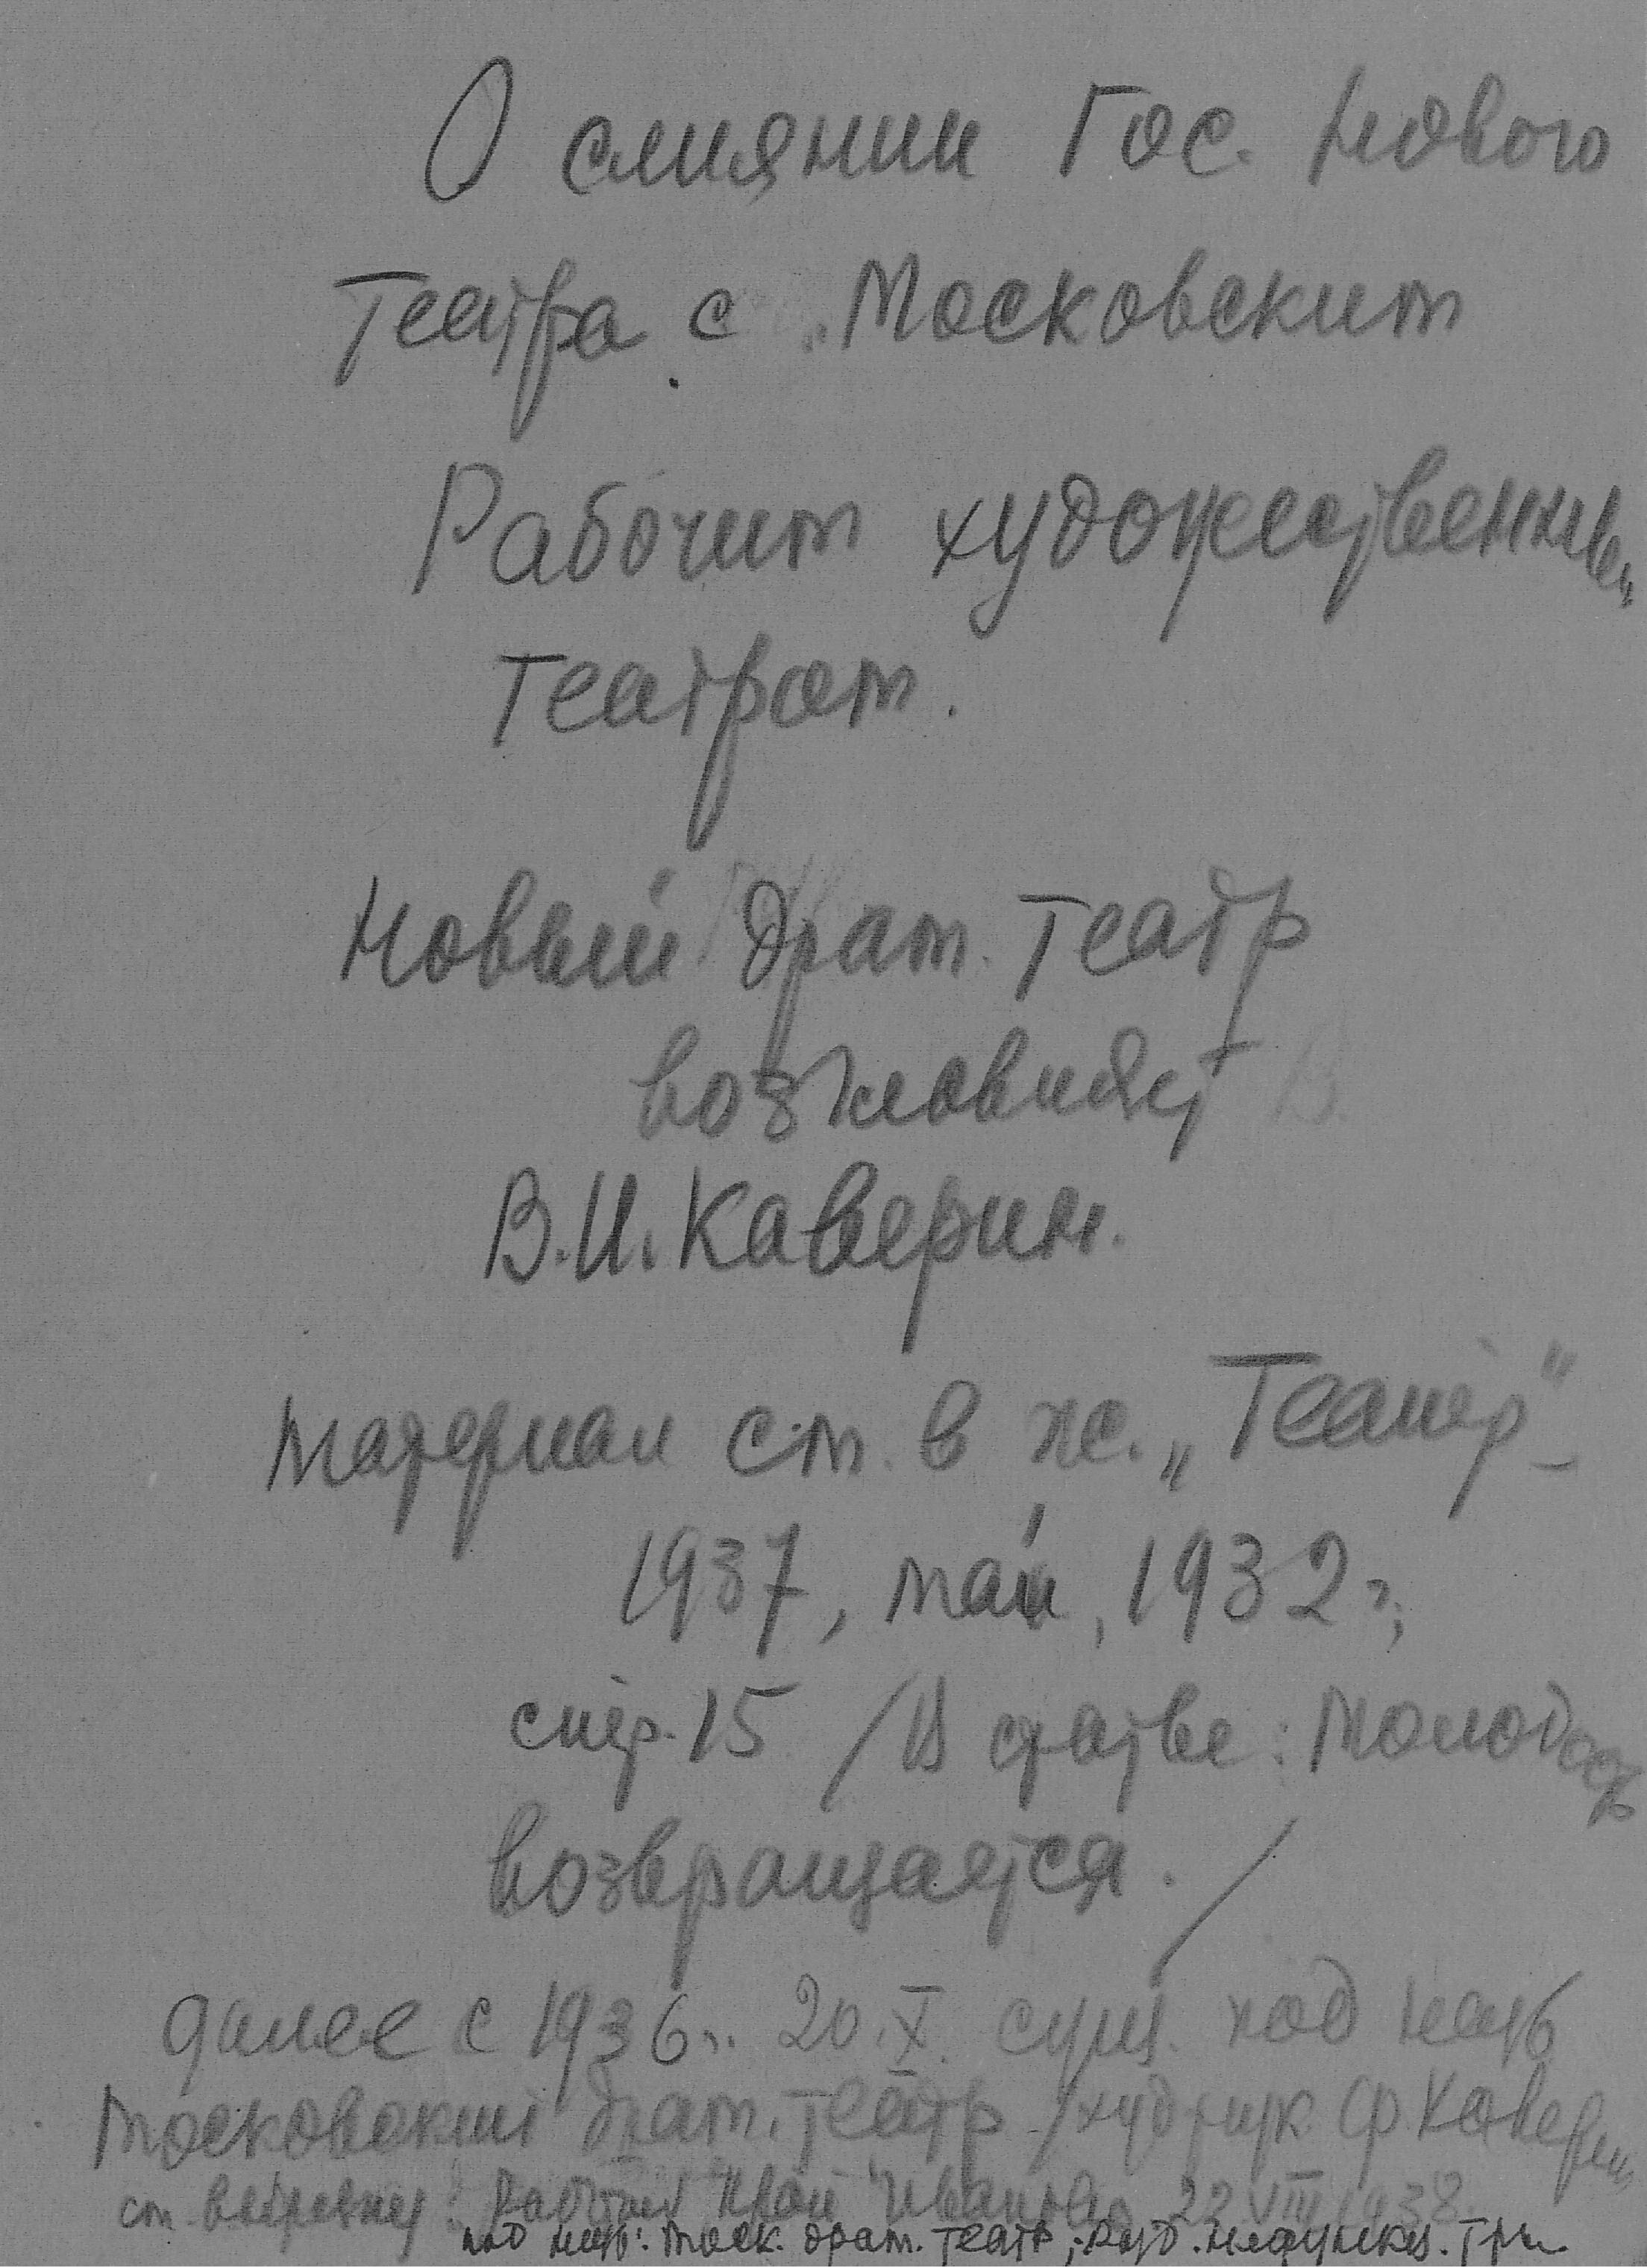 О слиянии Гос. Нового
Театра с „Московским
Рабочим художественным"
Театром.
Новый драт. Театр
возглавляет
В.И. Каверин.
Материал см. в ж. „Театр"
1937, май, 1932 г.,
стр. 15 / В статье: Молодость
возвращается. /
далее с 1936 г. 20.X. сущ. под назв
Московский драм. Театр / худ рук. Ф Каверин
см. вырезку: Рабочий край Иваново 22 VIII 1938.
под назв: Моск. драм. театр;